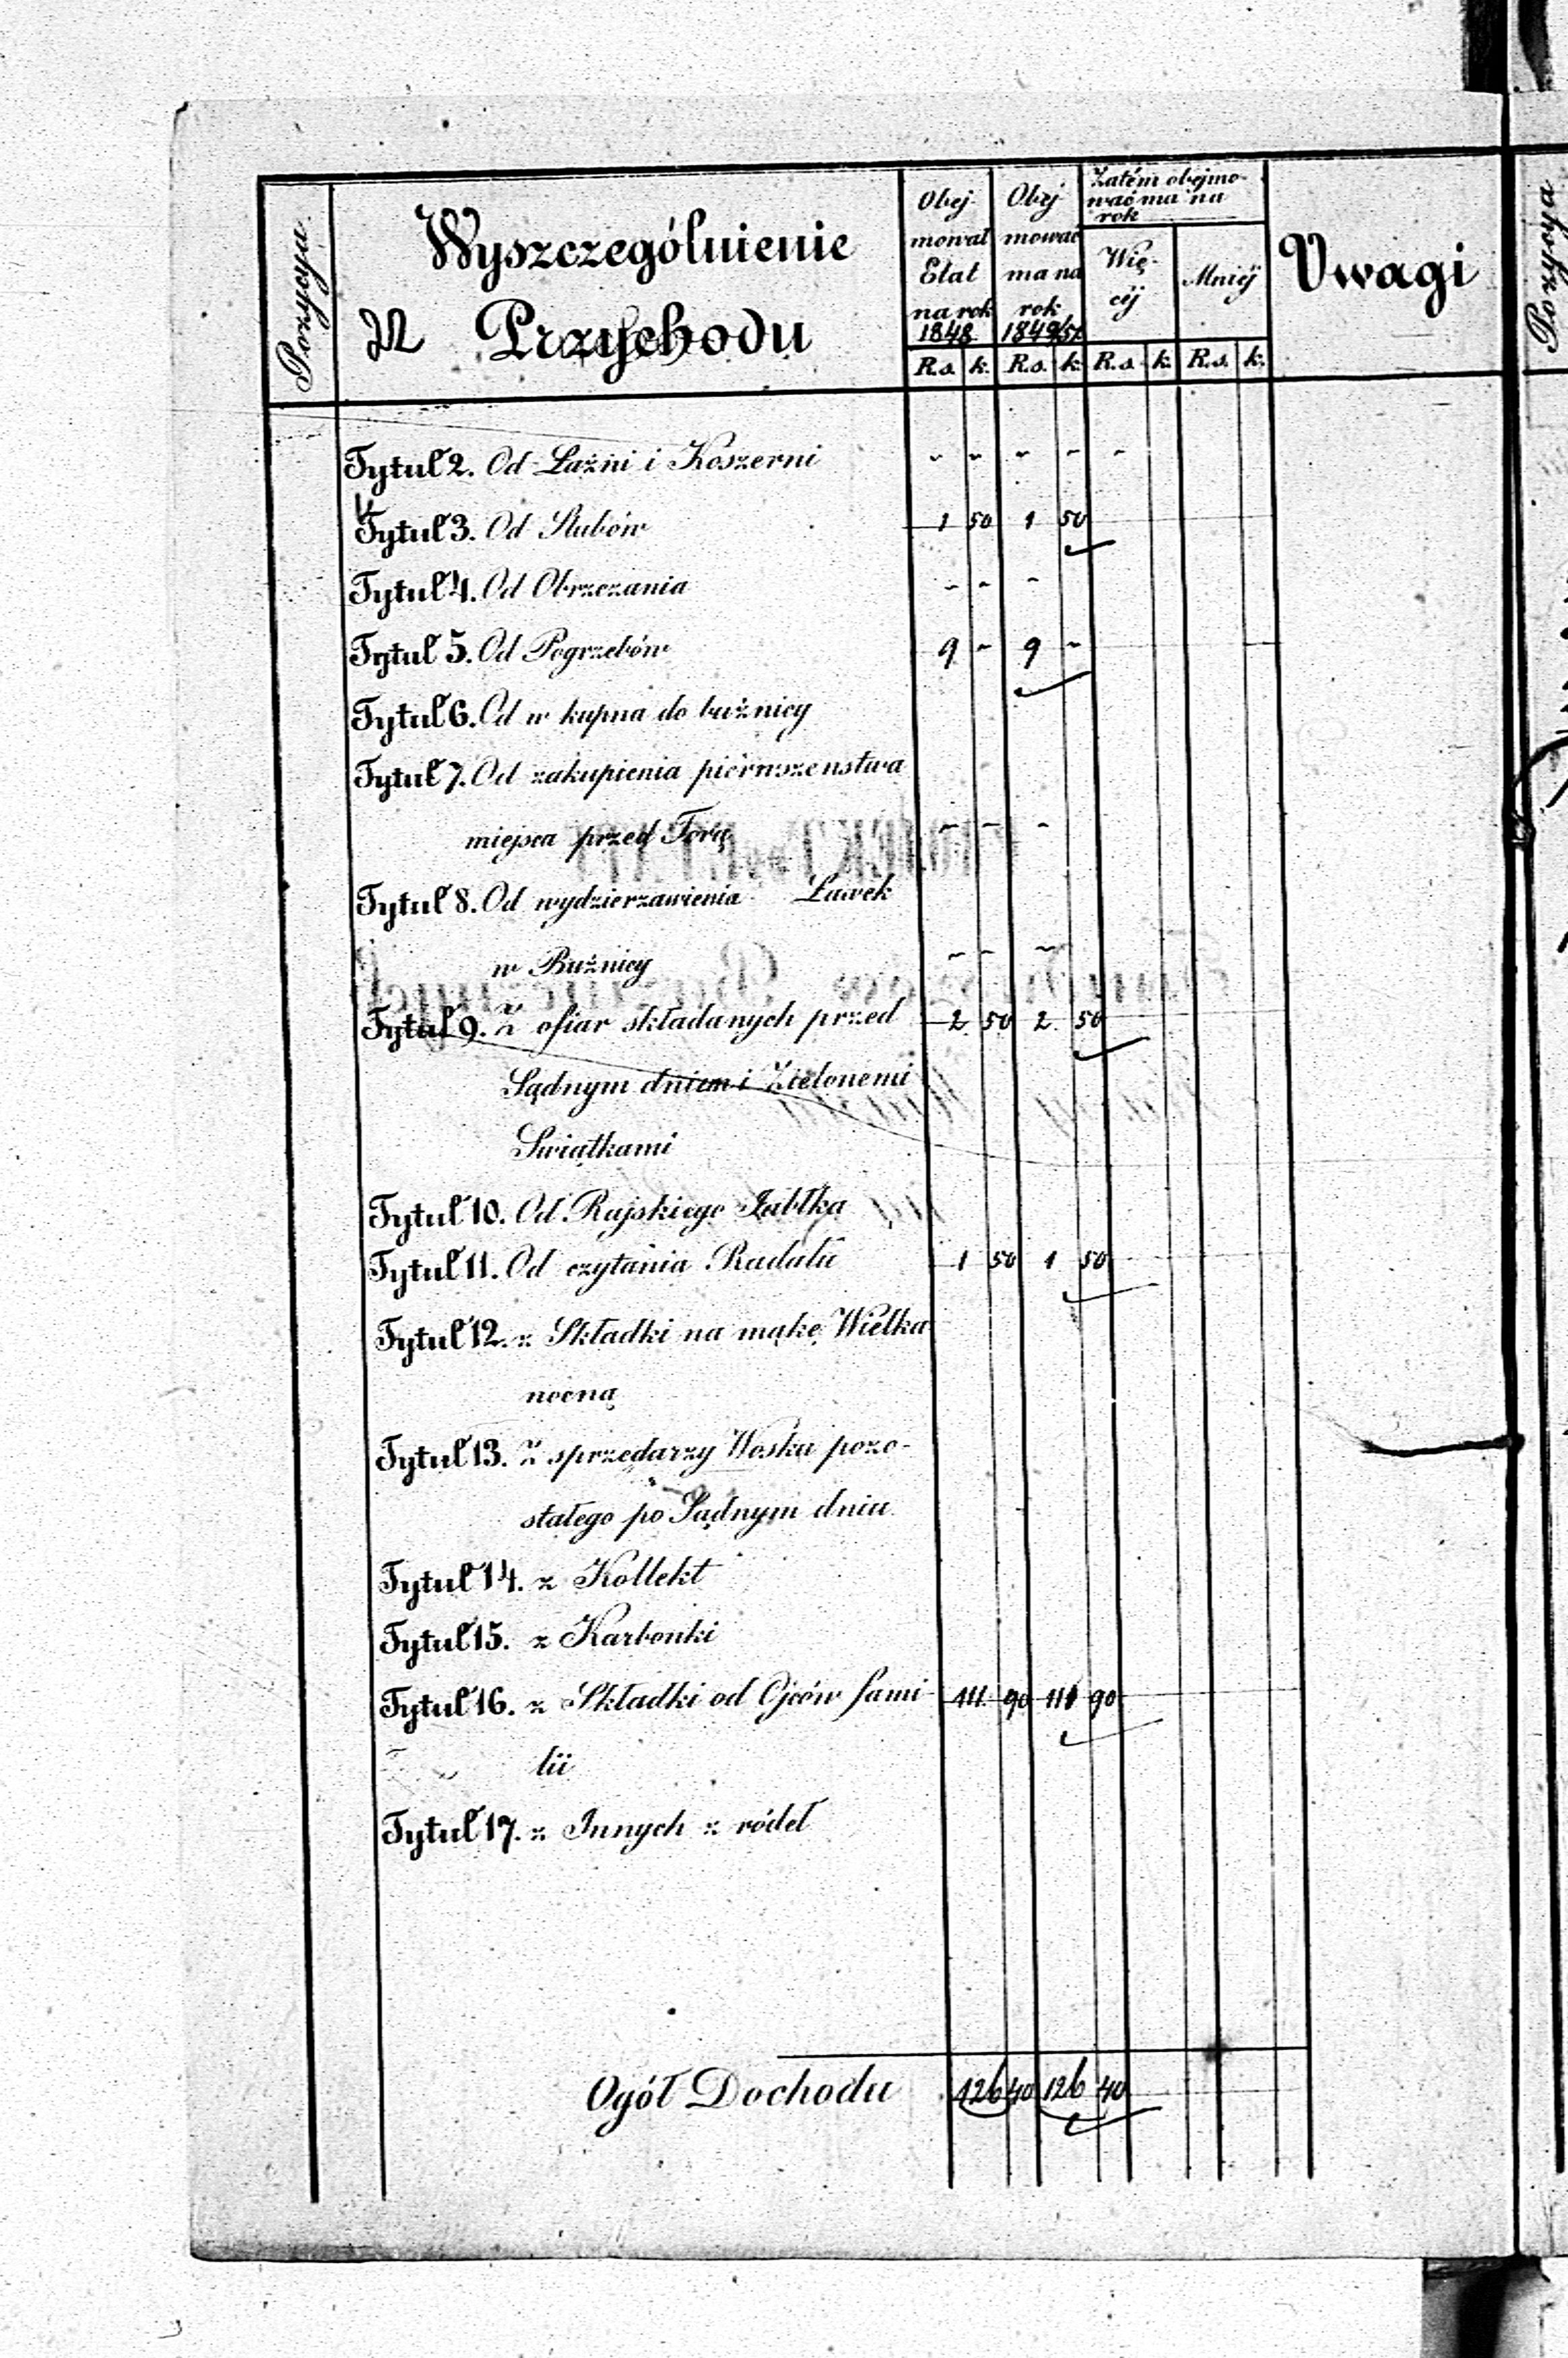 Pozycya
Wyszczególnienie
Przychodu
Obej-
mował
Etat
na rok
1848
Obej
mować
ma na
rok
1849/50
Zatém obejmo-
wać ma na
rok
Wię-
céj
Mniéj
Uwagi
R.s. k. R.s. k. R.s. k. R.s. k.
Tytuł 2. Od Łaźni i Koszerni - - - - -
Tytuł 3. Od Slubów 1 50 1 50
Tytuł 4. Od Obrzezania - - -
Tytuł 5. Od Pogrzebów 9 - 9 -
Tytuł 6. Od w kupna do buźnicy
Tytuł 7. Od zakupienia piérwszenstwa
miejsca przed Torą - - -
Tytuł 8. Od wydzierzawienia Ławek
w Buźnicy - - -
Tytuł 9. Z ofiar składanych przed 2 50 2 50
Sądnym dniem i Zielonemi
Swiątkami
Tytuł 10. Od Rajskiego Jabłka
Tytuł 11. Od czytania Radału 1 50 1 50
Tytuł 12. z Składki na mąkę Wielka
nocną
Tytuł 13. Z sprzedarzy Wosku pozo-
stałego po Sądnym dniu
Tytuł 14. z Kollekt
Tytuł 15. z Karbonki
Tytuł 16. z Składki od Ojców fami- 111 90 111 90
lii
Tytuł 17. z Innych z ródeł
Ogół Dochodu 126 40 126 40
Pozycya